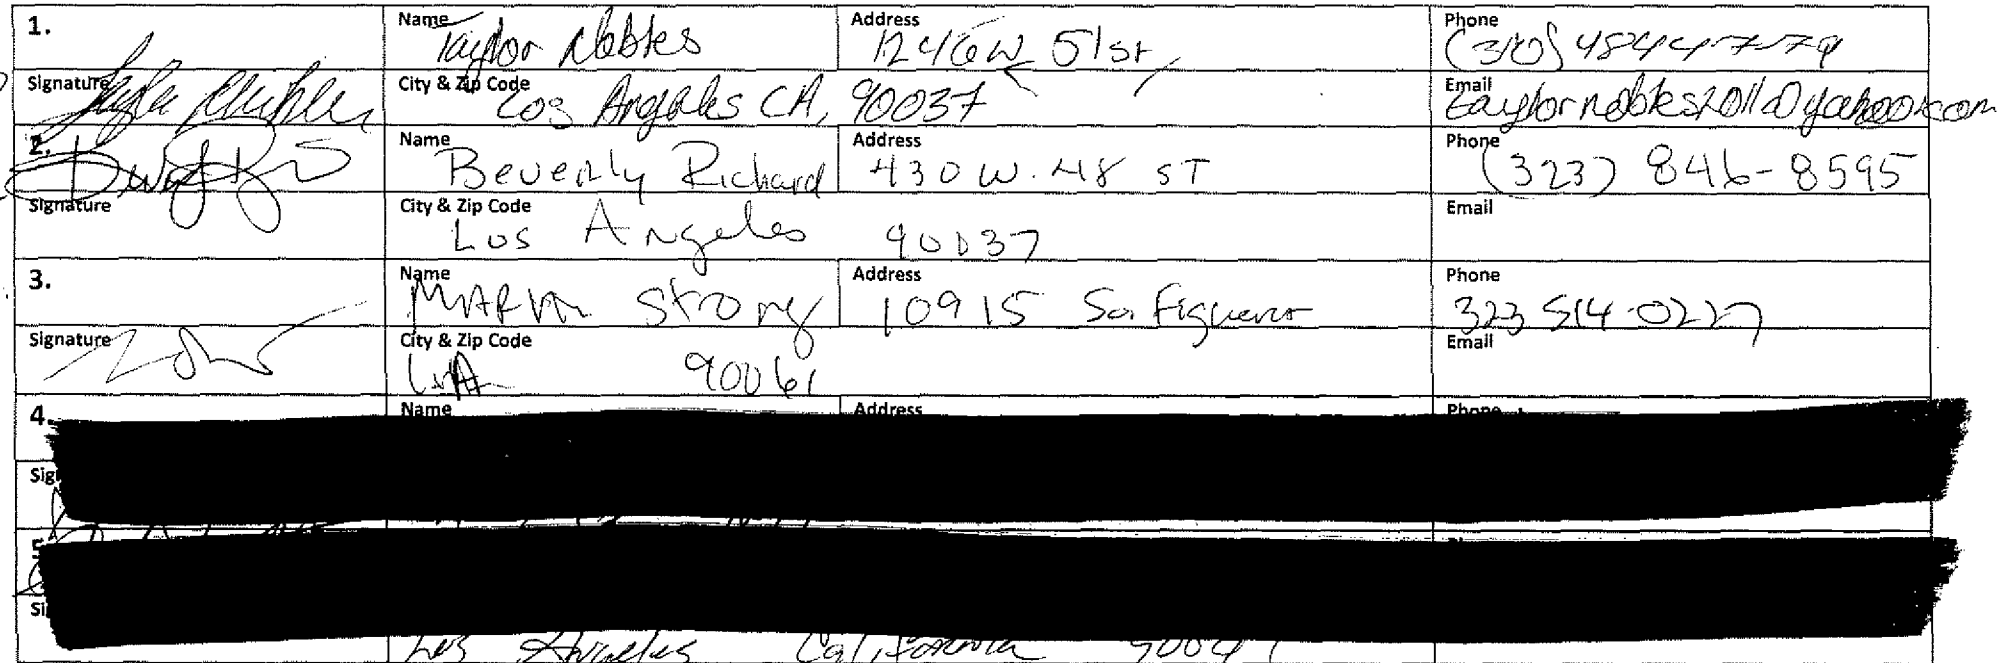 1. Name Taylor Nobles Address 1246 W 51st Phone (310) 484-4779
Signature City & Zip Code Los Angeles CA, 90037 Email taylornobles2011@yahoo.com
2. Name Beverly Richard Address 430 W. 48 ST Phone (323) 846-8595
Signature City & Zip Code Los Angeles 90037 Email
3. Name Strong Address 10915 So. Figueroa Phone 323 514-0227
Signature City & Zip Code LA 90061 Email
4. Name Address Phone
Sig
5
Si
Los Angeles California